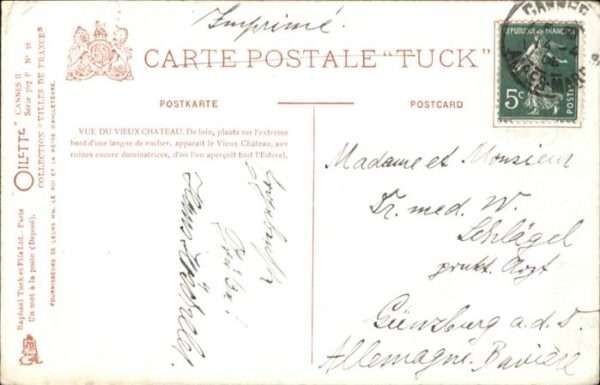 Imprimé.
CARTE POSTALE "TUCK"
POSTKARTE
POSTCARD
VUE DU VIEUX CHATEAU. De loin, plantée sur l'extrême
bord d'une langue de rocher, apparaît le Vieux Château, aux
ruines encore dominatrices, d'où l'on aperçoit tout l'Estérel.
"OILETTE" CANNES II
Série 797 P
COLLECTION "VILLES DE FRANCE"
Raphael Tuck et Fils Ltd. Paris
Un mot à la poste (Déposé).
FOURNISSEURS DE LEURS MM. LE ROI ET LA REINE D'ANGLETERRE.
CANNES
REPUBLIQUE FRANCAISE
5c
POSTES
Madame et Monsieur
Dr. med. W.
Schlägel
prakt. Arzt
Günzburg a. d. D.
Allemagne. Bavière
Hans